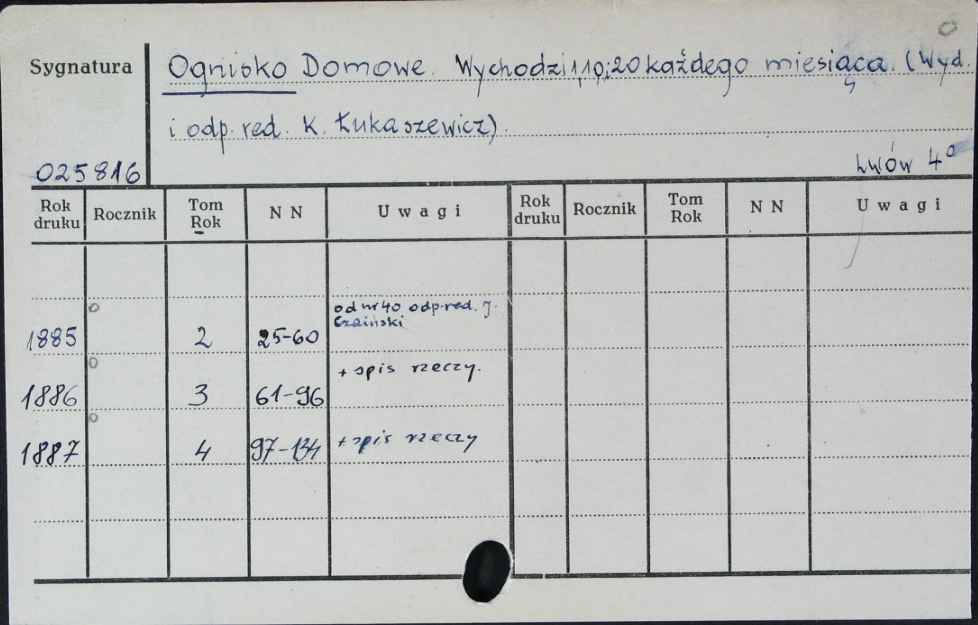 Sygnatura
Ognisko Domowe. Wychodzi 1,10 i 20 każdego miesiąca. (Wyd.
i odp. red. K. Łukaszewicz).
025816
Lwów 4°
Rok druku Rocznik Tom Rok NN Uwagi Rok druku Rocznik Tom Rok NN Uwagi
od nr 40 odp. red. J.
1885 2 25-60 Czaiński
1886 3 61-96 + spis rzeczy.
1887 4 97-134 + spis rzeczy